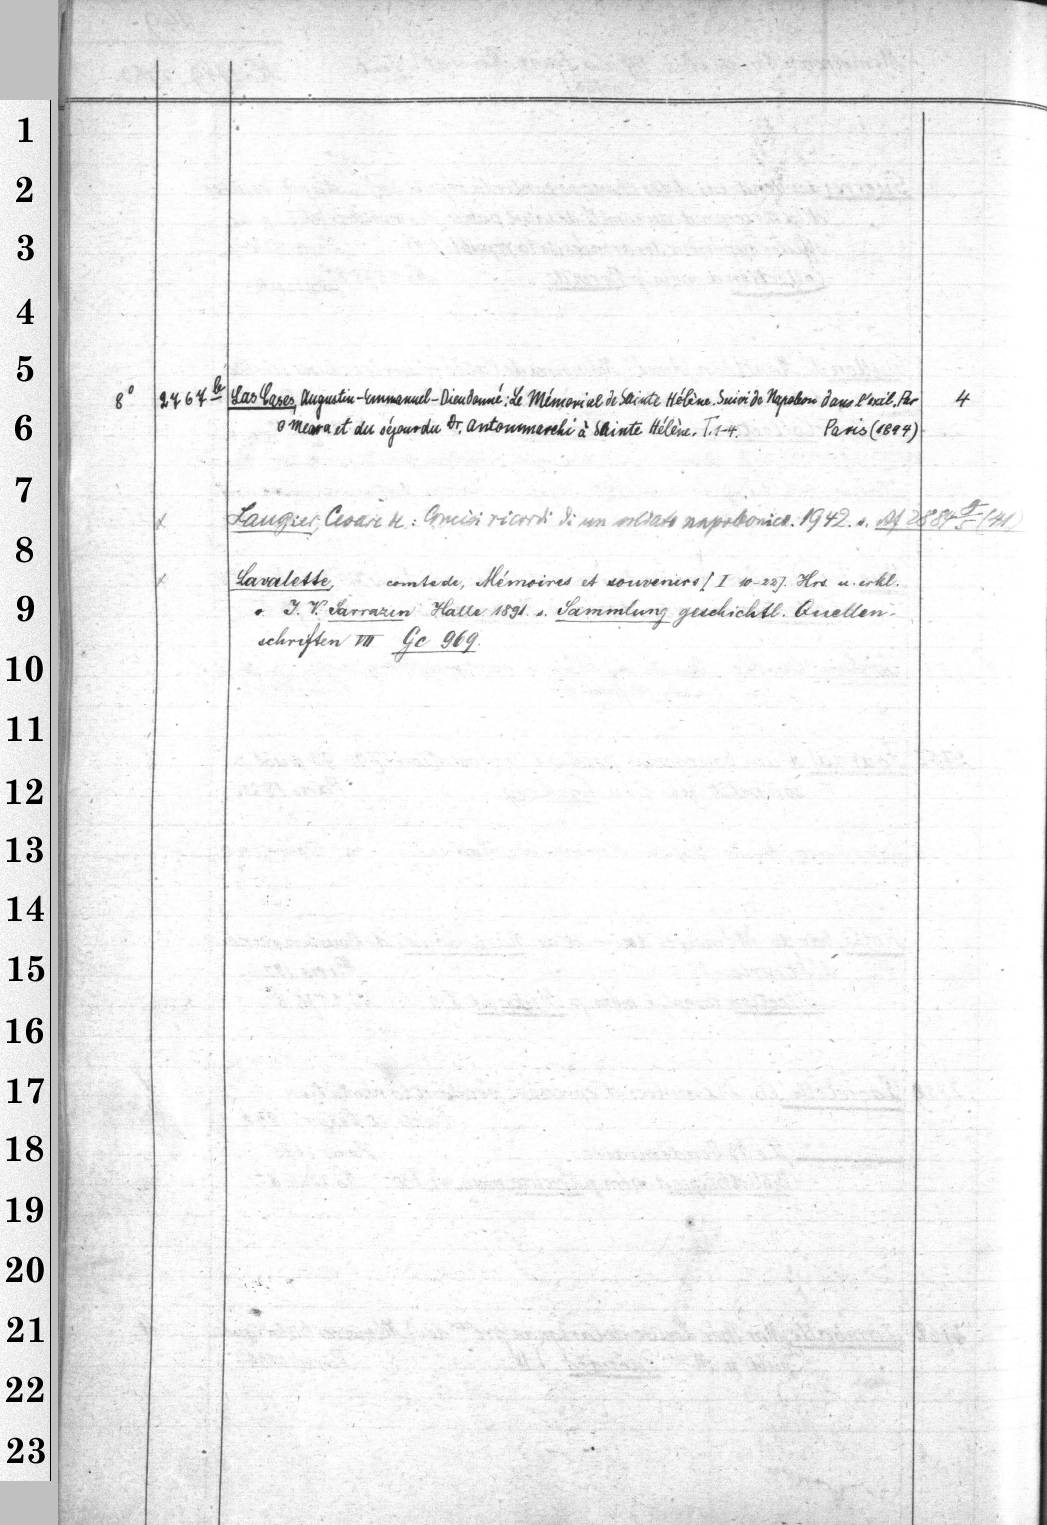 1
2
3
4
5
6
7
8
9
10
11
12
13
14
15
16
17
18
19
20
21
22
23
8° 2767 b Las Cases, Augustin-Emmanuel-Dieudonné: Le Mémorial de Sainte Hélène. Suivi de Napoleon dans l'exil. Par 4
O Meara et du séjour du Dr. Antommarchi à Sainte Hélène. T. 1-4. Paris (1894)
x Laugier, Cesare de: Concisi ricordi di un soldato napoleonico. 1942. s. Af 2884 (41)
x Lavalette, comte de, Mémoires et souvenirs [I 10-22]. Hrs u. erkl.
v. J. V. Sarrazin Halle 1891. s. Sammlung geschichtl. Quellen-
schriften VII Gc 969.